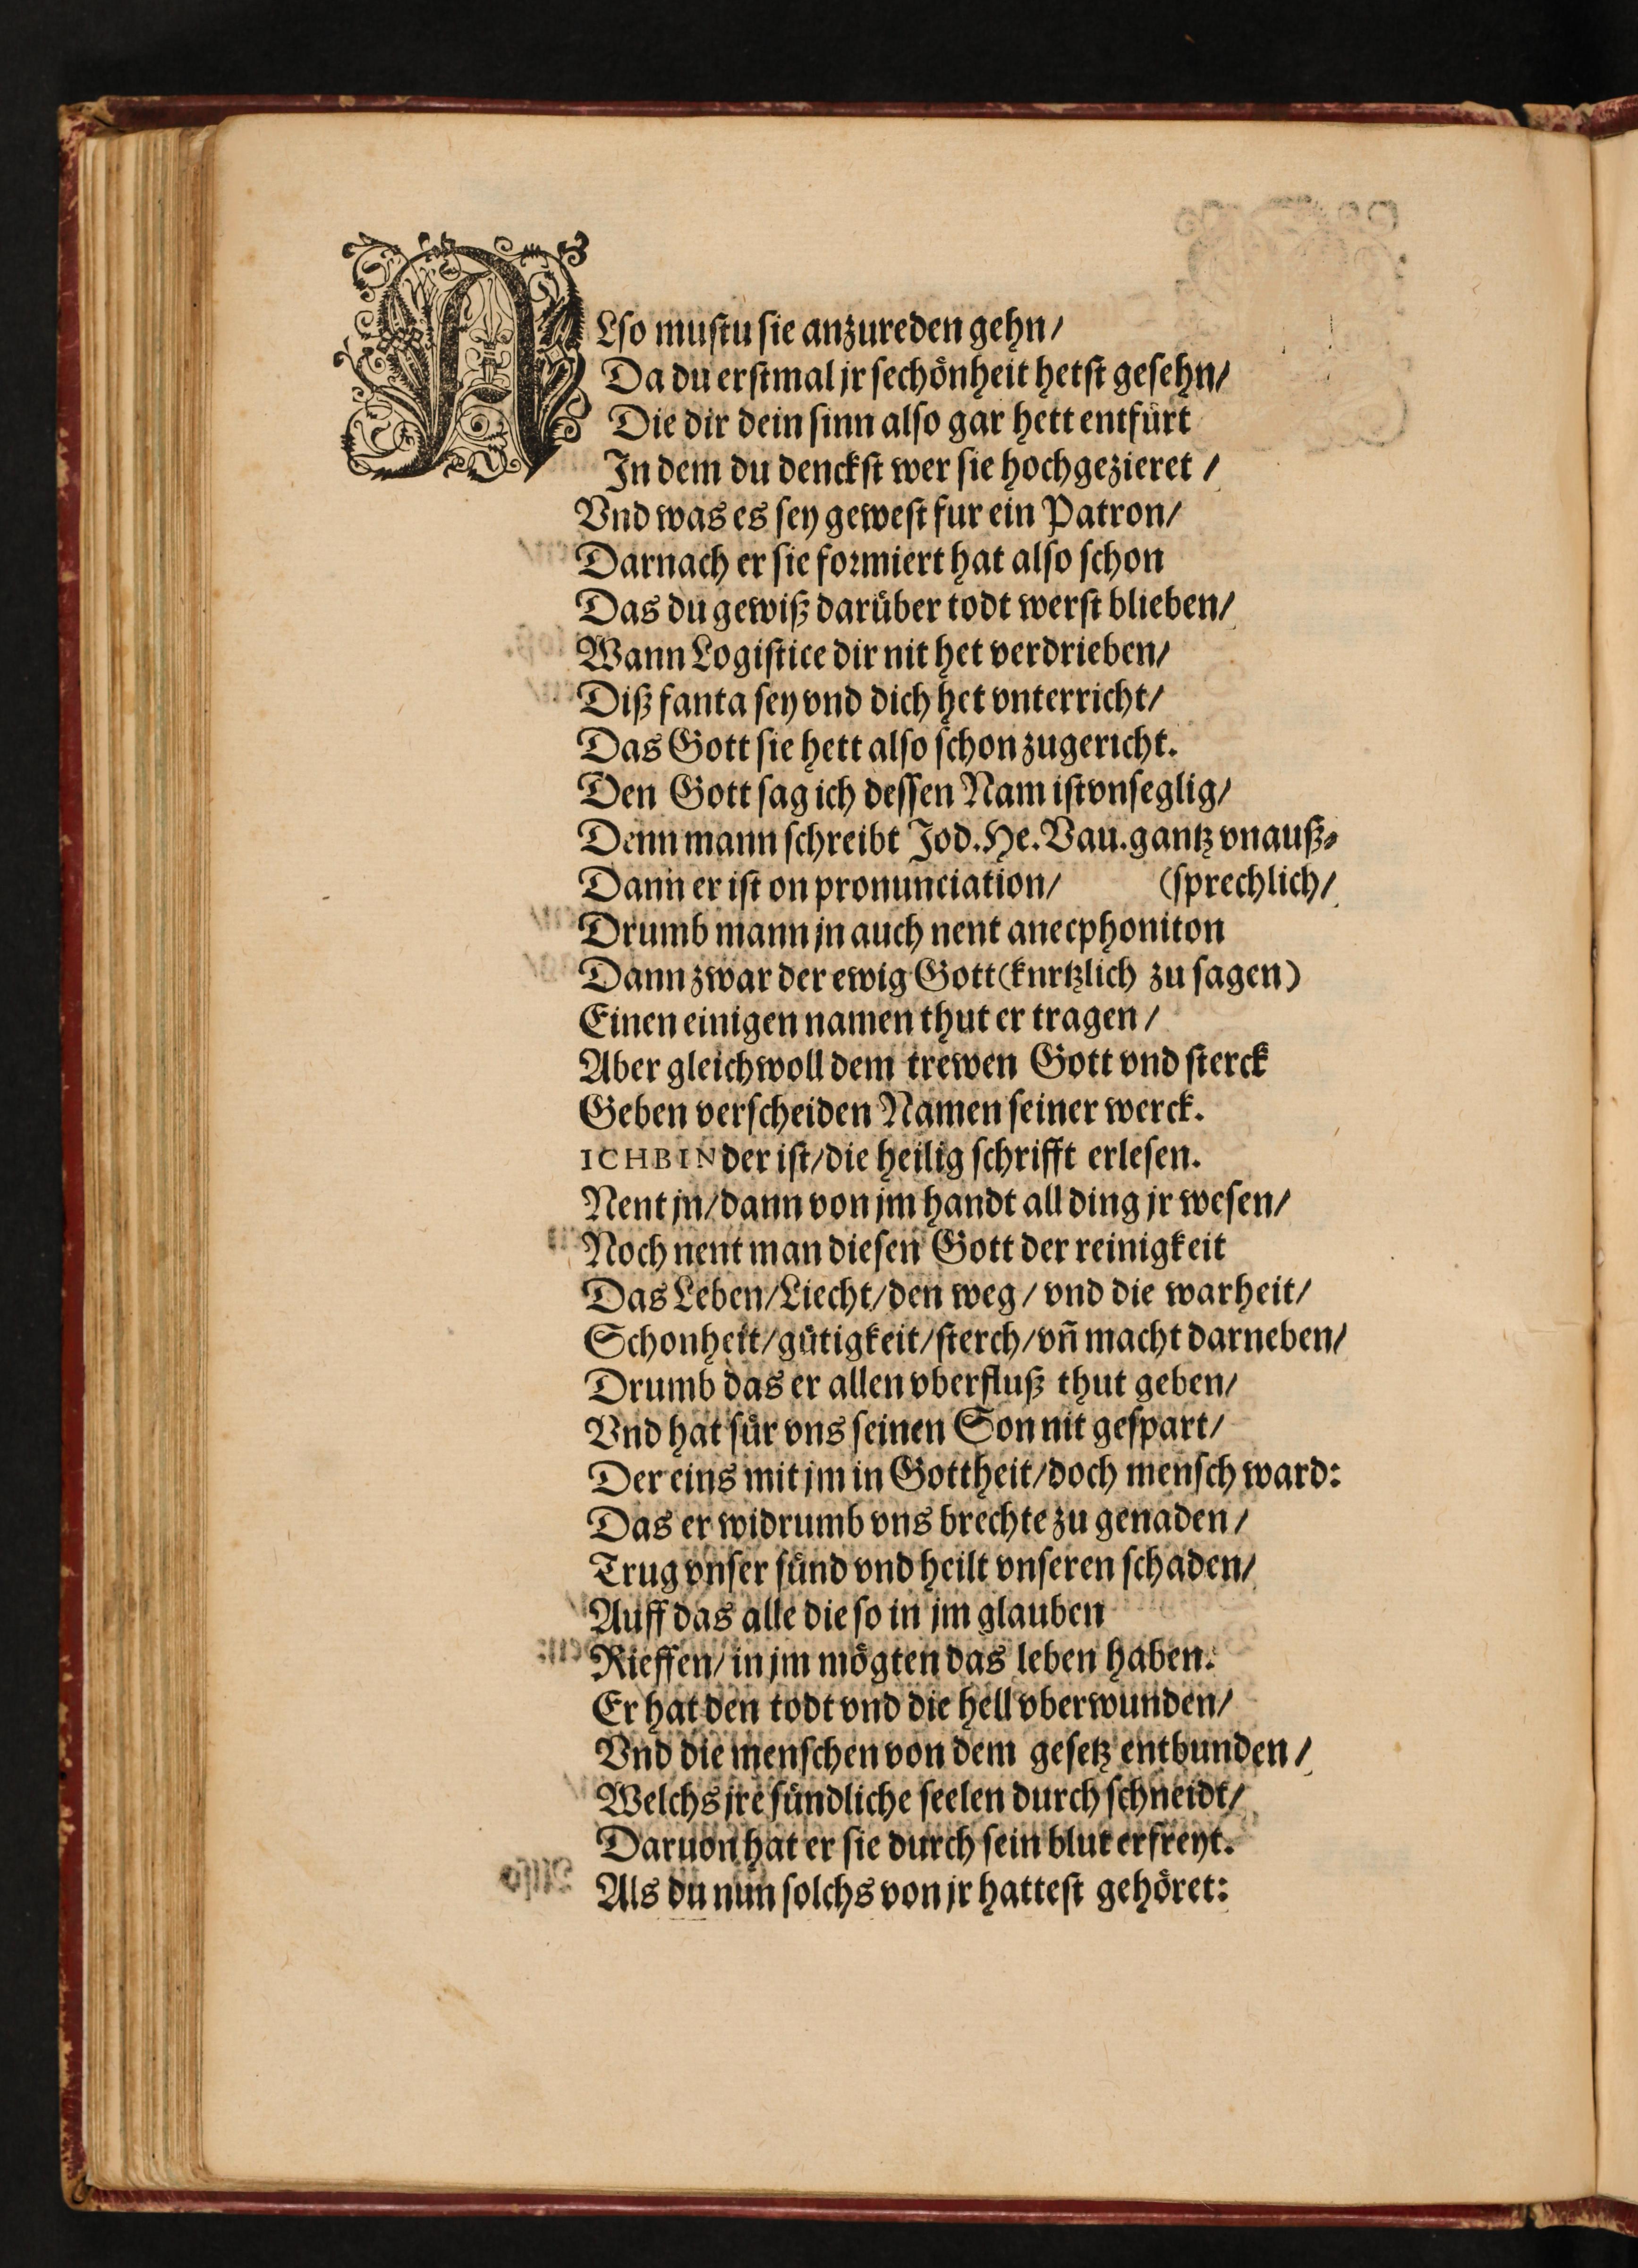 ALso mustu sie anzureden gehn/
Da du erstmal jr sechönheit hetst gesehn/
Die dir dein sinn also gar hett entfürt
In dem du denckst wer sie hochgezieret /
Vnd was es sey gewest fur ein Patron/
Darnach er sie formiert hat also schon
Das du gewiß darüber todt werst blieben/
Wann Logistice dir nit het verdrieben/
Diß fanta sey vnd dich het vnterricht/
Das Gott sie hett also schon zugericht.
Den Gott sag ich dessen Nam ist vnseglig/
Denn mann schreibt Jod.He.Vau.gantz vnauß⸗
Dann er ist on pronunciation/ (sprechlich/
Drumb mann jn auch nent anecphoniton
Dann zwar der ewig Gott (knrtzlich zu sagen)
Einen einigen namen thut er tragen /
Aber gleichwoll dem trewen Gott vnd sterck
Geben verscheiden Namen seiner werck.
ICHBIN der ist/die heilig schrifft erlesen.
Nent jn/dann von jm handt all ding jr wesen/
Noch nent man diesen Gott der reinigkeit
Das Leben/Liecht/den weg / vnd die warheit/
Schonheit/gütigkeit/sterch/vñ macht darneben/
Drumb das er allen vberfluß thut geben/
Vnd hat für vns seinen Son nit gespart/
Der eins mit jm in Gottheit/doch mensch ward:
Das er widrumb vns brechte zu genaden /
Trug vnser sünd vnd heilt vnseren schaden/
Auff das alle die so in jm glauben
Rieffen/ in jm mögten das leben haben.
Er hat den todt vnd die hell vberwunden/
Vnd die menschen von dem gesetz entbunden /
Welchs jre sündliche seelen durch schneidt/
Daruon hat er sie durch sein blut erfreyt.
Als du nun solchs von jr hattest gehöret: